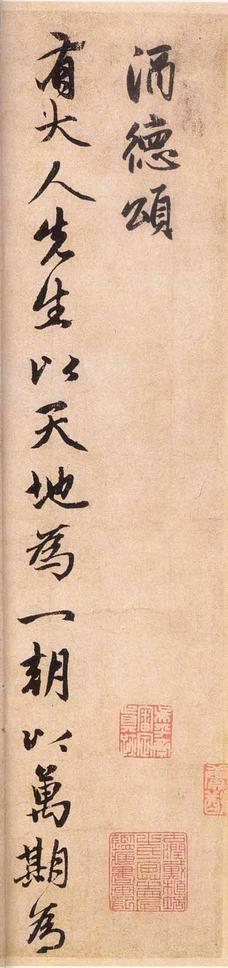 酒德頌
有大人先生以天地為一朝以萬期為